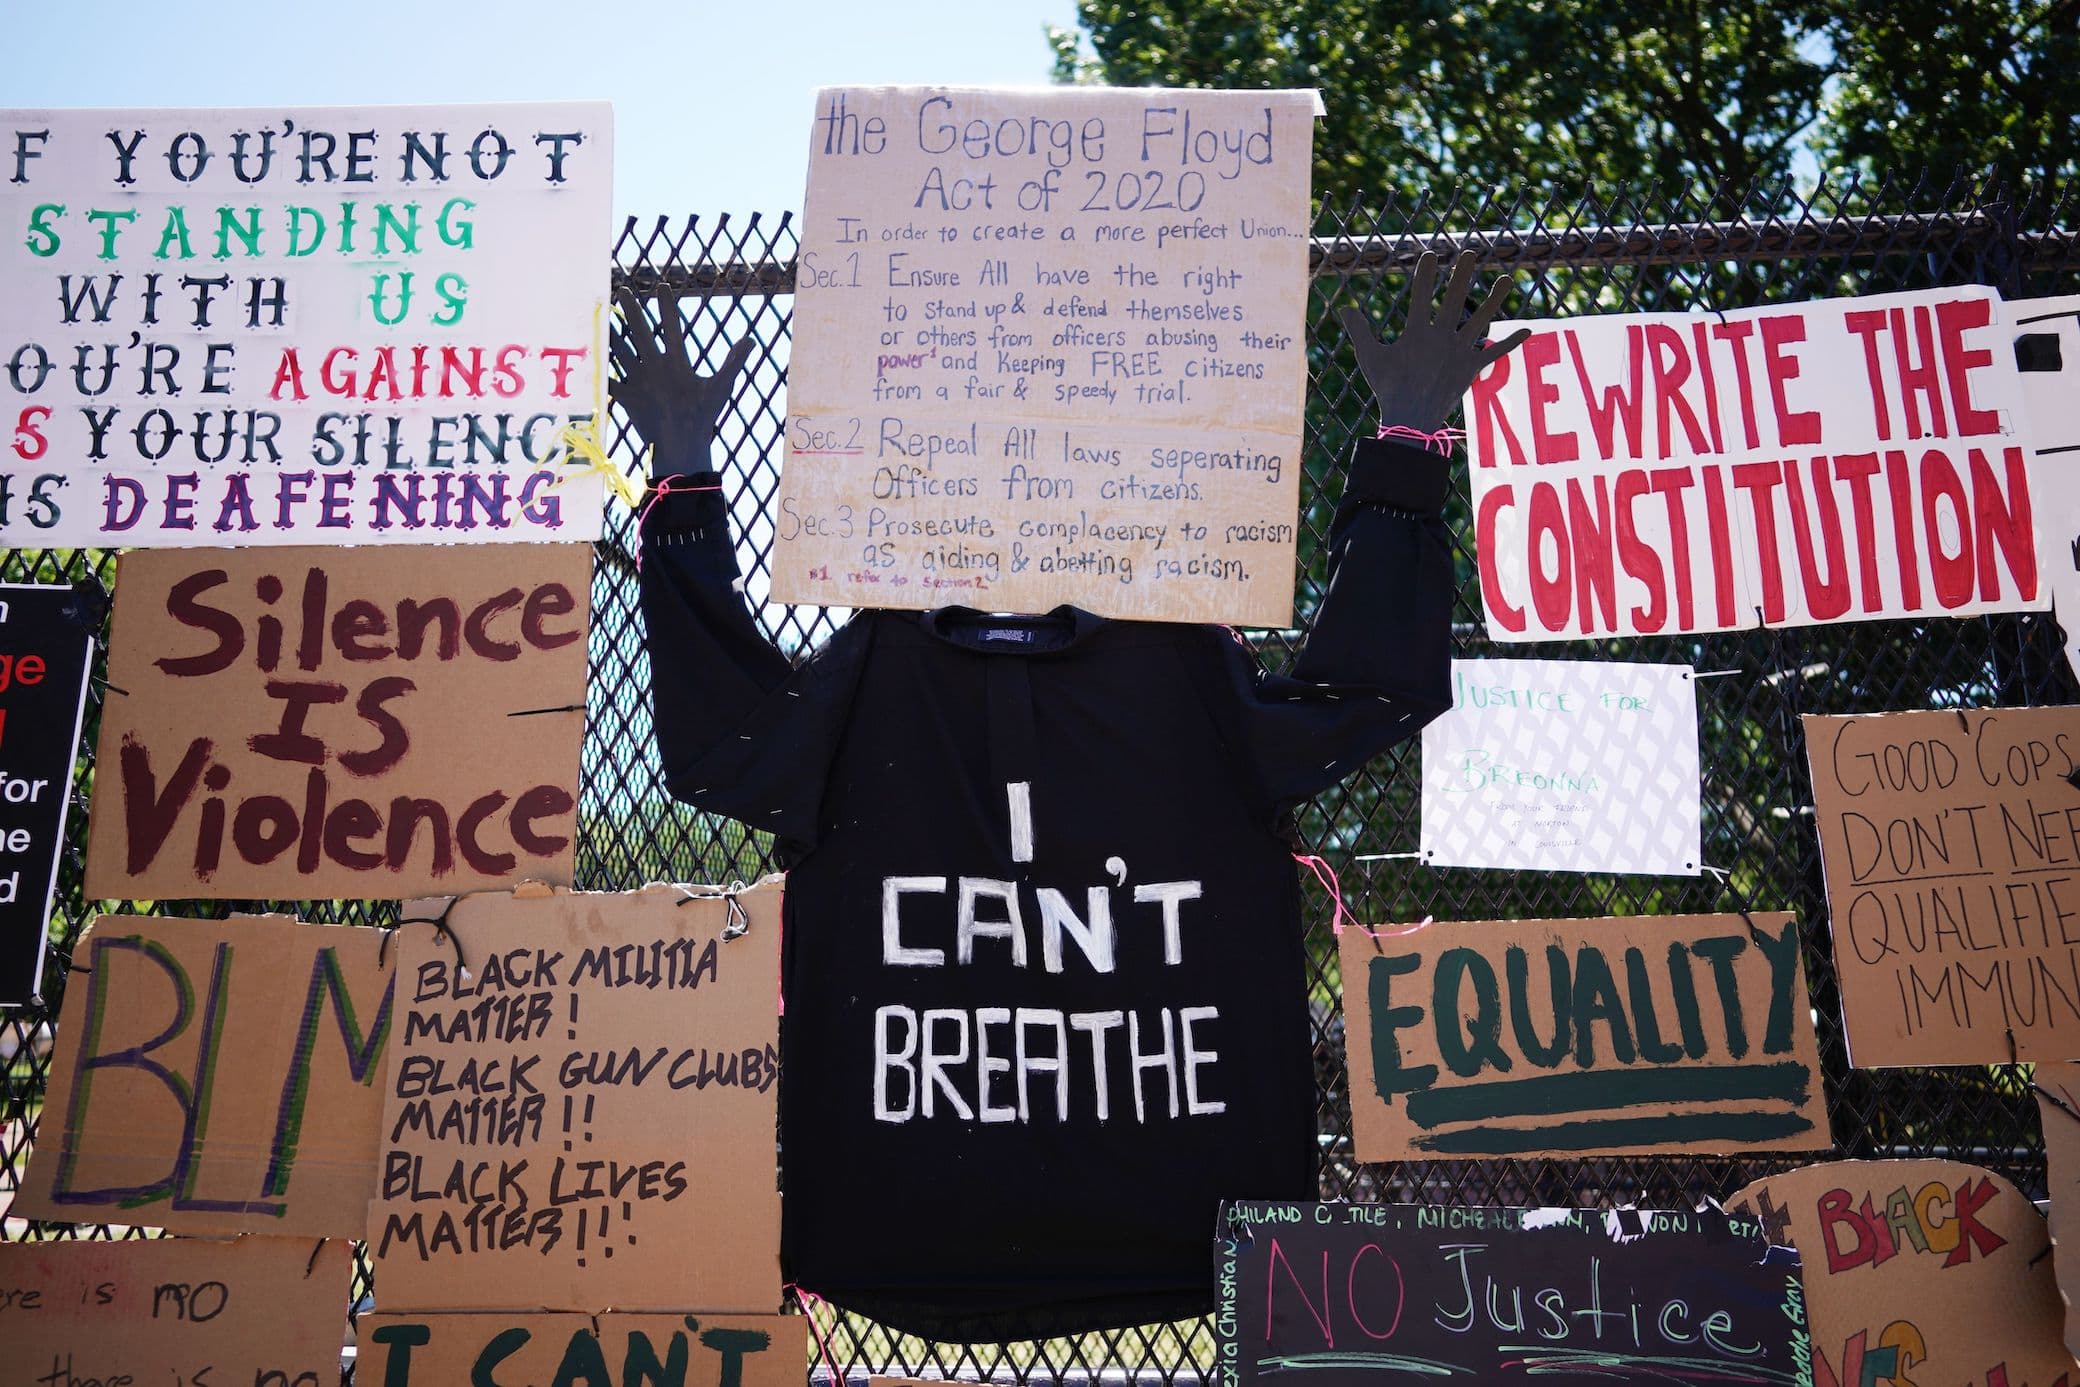 F YOU'RE NOT
STANDING
WITH US
OU'RE AGAINST
S YOUR SILENCE
IS DEAFENING
the George Floyd
Act of 2020
In order to create a more perfect Union...
Sec. 1 Ensure All have the right
to stand up & defend themselves
or others from officers abusing their
power¹ and keeping FREE citizens
from a fair & speedy trial.
Sec. 2 Repeal All laws seperating
Officers from citizens.
Sec. 3 Prosecute complacency to racism
as aiding & abetting racism.
*1 refer to Section 2
REWRITE THE
CONSTITUTION
Silence
IS
Violence
ge
for
JUSTICE FOR
BREONNA
FROM YOUR FRIENDS
AT NORTON
IN LOUISVILLE
GOOD COPS
DON'T NEE
QUALIFIE
IMMUN
I
CAN'T
BREATHE
BLM
BLACK MILITIA
MATTER!
BLACK GUN CLUBS
MATTER!!
BLACK LIVES
MATTER!!!
EQUALITY
PHILAND C TILE, MICHEAL
NO Justice
exia Christian
eddie Gray
BLACK
ere is no
there is no
I CAN'T